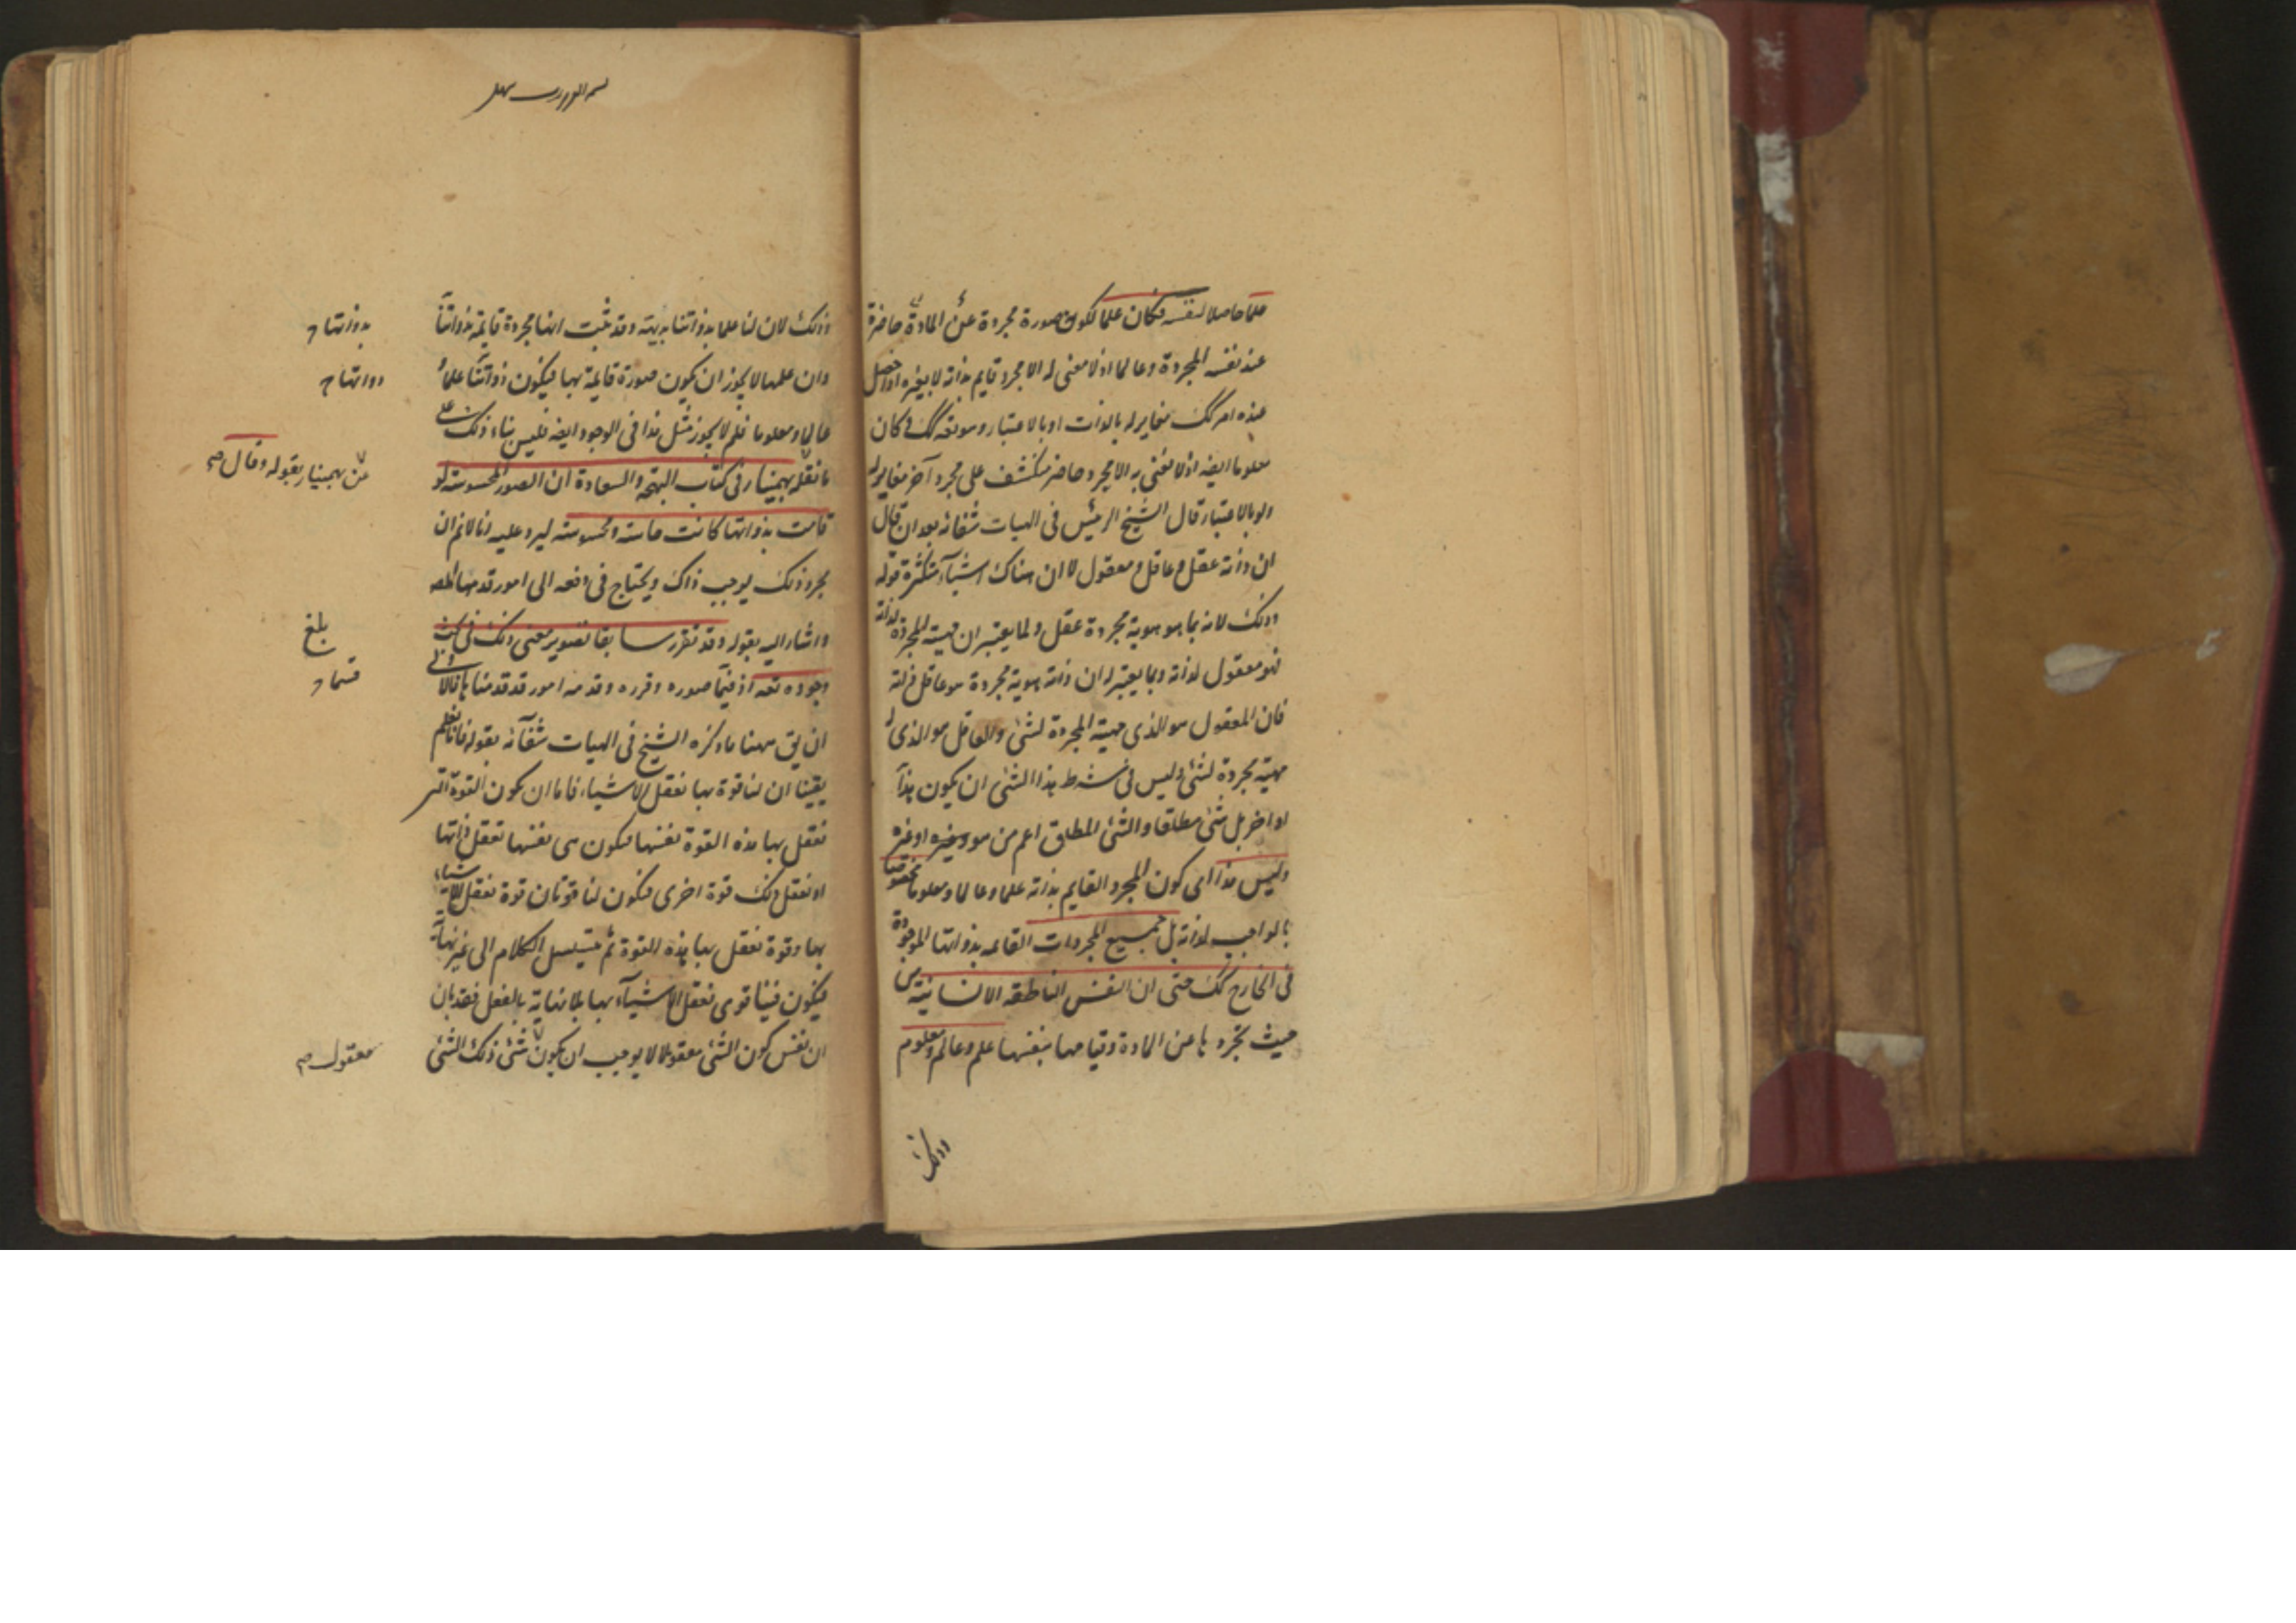 علما حاصلا لنفسه فكان علما لكونه صورة مجردة عن المادة حاضرة
عند نفسه المجردة وعالما اذ لا معنى له الا مجرد قايم بذاته لا بغيره اذا حصل
عنده امر كك مغاير له بالذات او بالاعتبار وهو نفسه كك فكان
معلوما ايضه اذ لا نعنى به الا مجرد حاضر منكشف على مجرد آخر مغاير له
ولو بالاعتبار قال الشيخ الرئيس فى الهيات شفائه بعد ان قال
ان ذاته عقل وعاقل ومعقول لا ان هناك اشياء متكثرة قوله
وذلك لانه بما هو هوية مجردة عقل ولما يعتبر ان هويته المجردة لذاته
فهو معقول لذاته وبما يعتبر له ان ذاته هوية مجردة هو عاقل ذاته
فان المعقول هو الذى مهيته المجردة لشئ والعاقل هو الذى له
مهية مجردة لشئ وليس فى شرط هذا الشئ ان يكون هذا
او اخر بل شئ مطلقا والشئ المطلق اعم من هو وغيره او غيره
وليس هذا اى كون المجرد القايم بذاته علما وعالما ومعلوما مختصا
بالواجب لذاته بل جميع المجردات القايمه بذواتها الموجودة
فى الخارج كك حتى ان النفس الناطقه الانسانية من
حيث تجردها عن المادة وقيامها بنفسها علم وعالم ومعلوم
وذلك
وذلك لان لنا علما بذواتنا بديهة وقد ثبت انها مجردة قايمة بذواتنا
بذواتها
وان علمها لا يجوز ان يكون صورة قايمة بها فيكون ذواتنا علما
ذواتها
عالما ومعلوما فلم لا يجوز مثل ذا فى الوجود ايضه فليس بناء ذلك على
ما نقله بهمنيار فى كتاب البهجة والسعادة ان الصور المحسوسة لو
من بهمنيار بقوله وقال
قامت بذواتها كانت حاسة ومحسوسة ليرد عليه انا لانم ان
مجرد ذلك يوجب ذاك ويحتاج فى دفعه الى امور قدمها المصه
واشار اليه بقوله وقد تقرر سابقا تصوير معنى ذلك فى بحث
بلغ
وجوده تعه اذ فيما صوره وقرره وقدمه امور قد قدمنا ها والاولى
ان يق ههنا ما ذكره الشيخ فى الهيات شفائه بقوله فانا نعلم
يقينا ان لنا قوة بها نعقل الاشياء فاما ان يكون القوة التى
نعقل بها هذه القوة نفسها فيكون هى نفسها تعقل ذاتها
او نعقل ذلك قوة اخرى فيكون لنا قوتان قوة نعقل الاشياء
بها وقوة نعقل بها هذه القوة ثم يتسلسل الكلام الى غير نهاية
فيكون فينا قوى نعقل الاشياء بها بلا نهاية بالفعل فقد بان
ان نفس كون الشئ معقولا لا يوجب ان يكون شئ ذلك الشئ
معقول